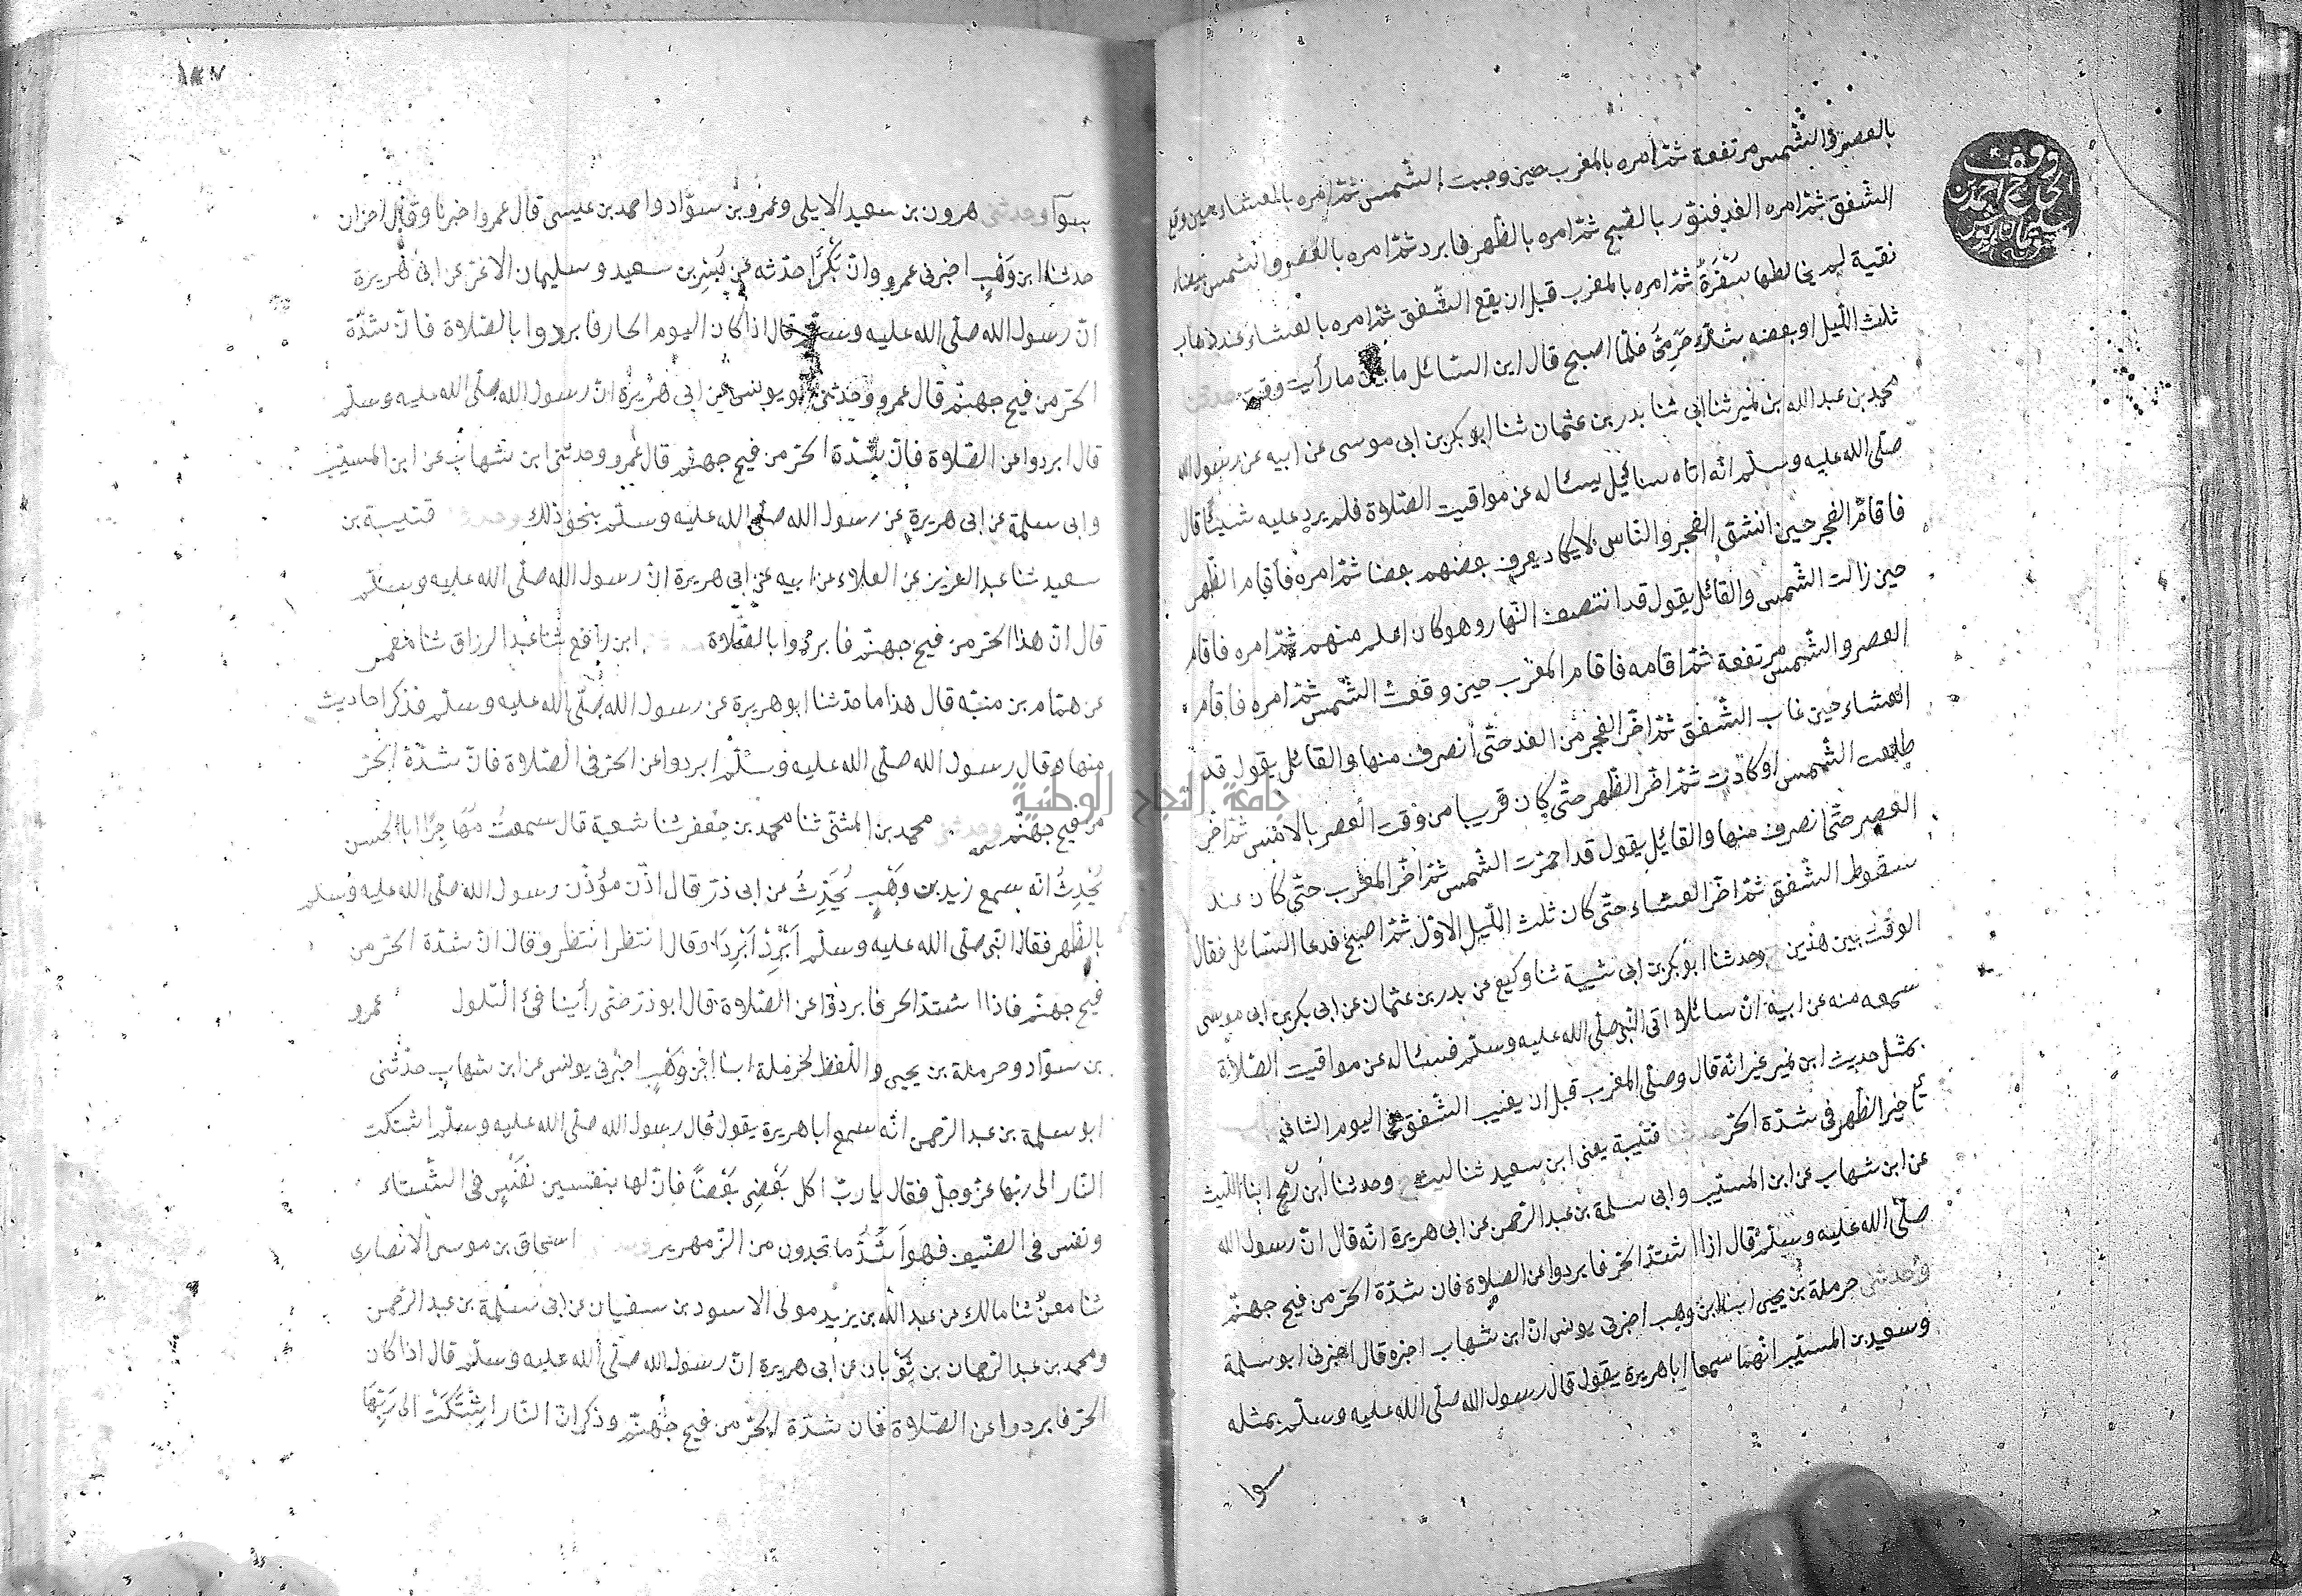 بالعصر والشمس مرتفعة ثم امره بالمغرب حين وجبت الشمس ثم امره بالعشاء حين وقع
الشفق ثم امره الغد فنور بالصبح ثم امره بالظهر فابرد ثم امره بالعصر والشمس بيضاء
نقية لم يخالطها سُفْرَةٌ ثم امره بالمغرب قبل ان يقع الشفق ثم امره بالعشاء عند ذهاب
ثلث الليل او بعضه شك حَرَمِىُّ فلما اصبح قال اين السائل ما بين ما رأيت وقت حدثنا
محمد بن عبد الله بن نمير ثنا ابى ثنا بدر بن عثمان ثنا ابو بكر بن ابى موسى عن ابيه عن رسول الله
صلى الله عليه وسلم انه اتاه سائل يسئاله عن مواقيت الصلاة فلم يرد عليه شيئا قال
فاقام الفجر حين انشق الفجر والناس لا يكاد يعرف بعضهم بعضا ثم امره فاقام الظهر
حين زالت الشمس والقائل يقول قد انتصف النهار وهو كان اعلم منهم ثم امره فاقام
العصر والشمس مرتفعة ثم اقامه فاقام المغرب حين وقعت الشمس ثم امره فاقام
العشاء حين غاب الشفق ثم اخر الفجر من الغد حتى انصرف منها والقائل يقول قد
طلعت الشمس او كادت ثم اخر الظهر حتى كان قريبا من وقت العصر بالامس ثم اخر
العصر حتى انصرف منها والقائل يقول قد احمرت الشمس ثم اخر المغرب حتى كان عند
سقوط الشفق ثم اخر العشاء حتى كان ثلث الليل الاول ثم اصبح فدعا السائل فقال
الوقت بين هذين وحدثنا ابو بكر بن ابى شيبة ثنا وكيع عن بدر بن عثمان عن ابى بكر بن ابى موسى
سمعه منه عن ابيه ان سائلا اتى النبى صلى الله عليه وسلم فسئاله عن مواقيت الصلاة
بمثل حديث ابن نمير غير انه قال وصلى المغرب قبل ان يغيب الشفق فى اليوم الثانى
تأخير الظهر فى شدة الحر حدثنا قتيبة يعنى ابن سعيد ثنا ليث ح وحدثنا ابن رمح ابنا الليث
عن ابن شهاب عن ابن المسيب وابى سلمة بن عبد الرحمن عن ابى هريرة انه قال ان رسول الله
صلى الله عليه وسلم قال اذا اشتد الحر فابردوا عن الصلاة فان شدة الحر من فيح جهنم
وحدثنى حرملة بن يحيى ابنا ابن وهب اخبرنى يونس ان ابن شهاب اخبره قال اخبرنى ابو سلمة
وسعيد بن المسيب انهما سمعا ابا هريرة يقول قال رسول الله صلى الله عليه وسلم بمثله
سوا
وقف
الحاج احمد بن
سليمان
١٨٧
سوآ وحدثنى هرون بن سعيد الايلى وعمرو بن سواد واحمد بن عيسى قال عمرو اخبرنا وقال اخران
حدثنا ابن وَهْبٍ اخبرنى عمرو وان بَكْرًا حدثه عن بُسْرِ بن سعيد وسليمان الاغر عن ابى هريرة
ان رسول الله صلى الله عليه وسلم قال اذا كان اليوم الحار فابردوا بالصلاة فان شدة
الحر من فيح جهنم قال عمرو وحدثنى ابو يونس عن ابى هريرة ان رسول الله صلى الله عليه وسلم
قال ابردوا عن الصلاة فان شدة الحر من فيح جهنم قال عمرو وحدثنى ابن شهاب عن ابن المسيب
وابى سلمة عن ابى هريرة عن رسول الله صلى الله عليه وسلم بنحو ذلك وحدثنا قتيبة بن
سعيد ثنا عبد العزيز عن العلاء عن ابيه عن ابى هريرة ان رسول الله صلى الله عليه وسلم
قال ان هذا الحر من فيح جهنم فابردوا بالصلاة ابن رافع ثنا عبد الرزاق ثنا معمر
عن همام بن منبه قال هذا ما حدثنا ابو هريرة عن رسول الله صلى الله عليه وسلم فذكر احاديث
منها وقال رسول الله صلى الله عليه وسلم ابردوا عن الحر فى الصلاة فان شدة الحر
من فيح جهنم وحدثنى محمد بن المثنى ثنا محمد بن جعفر ثنا شعبة قال سمعت مُهَاجِرًا ابا الحسن
يُحَدِّثُ انه سمع زيد بن وَهْبٍ يُحَدِّثُ عن ابى ذر قال اذن مؤذن رسول الله صلى الله عليه وسلم
بالظهر فقال النبى صلى الله عليه وسلم اَبْرِدْ اَبْرِدْ او قال انتظر انتظر وقال ان شدة الحر من
فيح جهنم فاذا اشتد الحر فابردوا عن الصلاة قال ابو ذر حتى رأينا فئ التلول عمرو
بن سواد وحرملة بن يحيى واللفظ لحرملة ابنا ابن وَهْبٍ اخبرنى يونس عن ابن شهاب حدثنى
ابو سلمة بن عبد الرحمن انه سمع ابا هريرة يقول قال رسول الله صلى الله عليه وسلم اشتكت
النار الى ربها عز وجل فقال يا رب اكل بَعْضِى بَعْضًا فاذن لها بنفسين نفَسٍ فى الشتاء
ونفس فى الصيف فهو اَشَدُّ ما تجدون من الزمهرير اسحاق بن موسى الانصارى
ثنا معنٌ ثنا مالك عن عبد الله بن يزيد مولى الاسود بن سفيان عن ابى سلمة بن عبد الرحمن
ومحمد بن عبد الرحمان بن ثَوْبان عن ابى هريرة ان رسول الله صلى الله عليه وسلم قال اذا كان
الحر فابردوا عن الصلاة فان شدة الحر من فيح جهنم وذكر ان النار اشْتَكَتْ الى رَبِّهَا
جامعة النجاح الوطنية